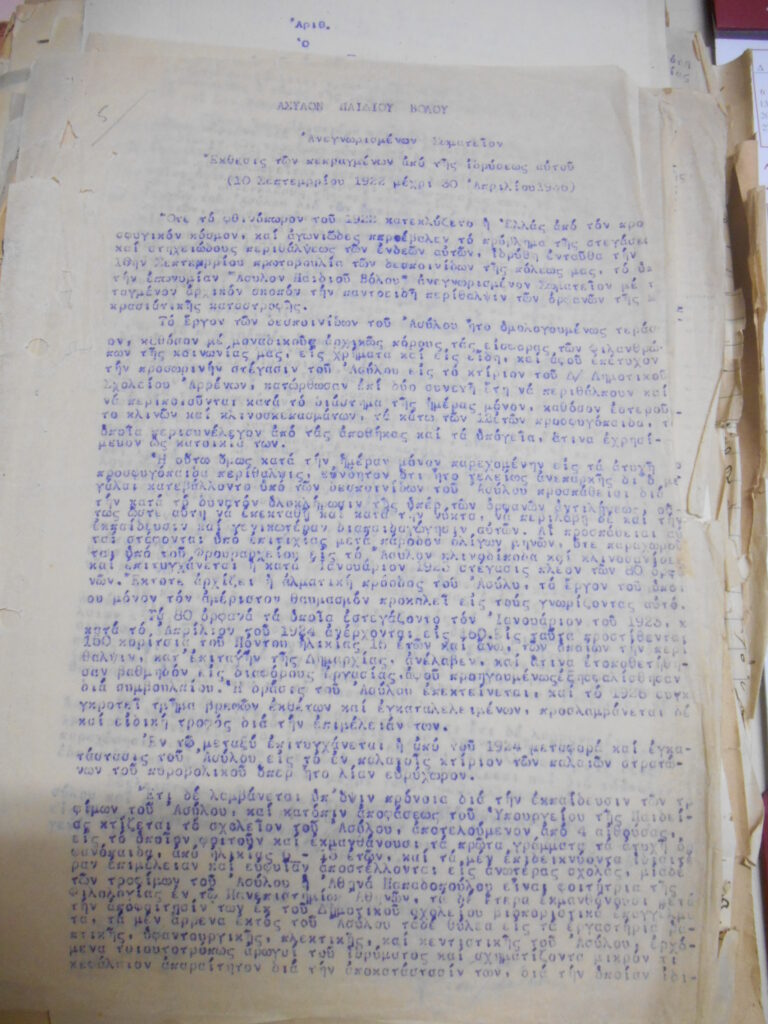 Ἀριθ.
Ὁ
5/
ΑΣΥΛΟΝ ΠΑΙΔΙΟΥ ΒΟΛΟΥ
Ἀνεγνωρισμένων Σωματεῖον
Ἔκθεσις τῶν πεπραγμένων ἀπό τῆς ἱδρύσεως αὐτοῦ
(10 Σεπτεμβρίου 1922 μέχρι 30 Ἀπριλίου 1936)
Ὅτε τό φθινόπωρον τοῦ 1922 κατεκλύζετο ἡ Ἑλλάς ἀπό τόν προ
σφυγικόν κόσμον, καί ἀγωνιῶδες προέβαλεν τό πρόβλημα τῆς στεγάσε
καί στοιχειώδους περιθάλψεως τῶν ἐνδεῶν αὐτῶν, ἱδρύθη ἐνταῦθα τήν
10ην Σεπτεμβρίου πρωτοβουλίᾳ τῶν δεσποινίδων τῆς πόλεως μας, τό ὑ
τήν ἐπωνυμίαν "Ἄσυλον Παιδιοῦ Βόλου" ἀνεγνωρισμένον Σωματεῖον μέ τ
ταγμένον ἀρχικόν σκοπόν τήν παντοειδῆ περίθαλψιν τῶν ὀρφανῶν τῆς
κρασιατικῆς καταστροφῆς.
Τό ἔργον τῶν δεσποινίδων τοῦ Ἀσύλου ἦτο ὁμολογουμένως τεράσ
ον, καθόσον μέ μοναδικούς ἀρχικῶς πόρους τάς εἰσφοράς τῶν φιλανθρώ
πων τῆς κοινωνίας μας, εἰς χρήματα καί εἰς εἴδη, καί ἀφοῦ ἐπέτυχον
τήν προσωρινήν στέγασιν τοῦ Ἀσύλου εἰς τό κτίριον τοῦ Δ/ Δημοτικοῦ
Σχολείου Ἀρρένων, κατώρθωσαν ἐπί δύο συνεχῆ ἔτη νά περιθάλπουν καί
νά περιποιοῦνται κατά τό διάστημα τῆς ἡμέρας μόνον, καθόσον ἐστεροῦ
το κλινῶν καί κλινοσκεπασμάτων, τά κάτω τῶν 12ετῶν προσφυγόπαιδα, τ
ὁποῖα περισυνέλεγον ἀπό τάς ἀποθήκας καί τά ὑπόγεια, ἅτινα ἐχρησί
μευον ὡς κατοικία των.
Ἡ οὕτω ὅμως κατά τήν ἡμέραν μόνον παρεχομένη εἰς τά ἀτυχῆ
προσφυγόπαιδα περίθαλψις, εὐνόητον ὅτι ἦτο τελείως ἀνεπαρκής δι' ὅ με
γάλαι κατεβάλλοντο ὑπό τῶν δεσποινίδων τοῦ Ἀσύλου προσπάθειαι διά
τήν κατά τό δυνατόν ὁλοκλήρωσιν τῆς ὑπέρ τῶν ὀρφανῶν ἀντιλήψεως, οὕ
τως ὥστε αὕτη νά ἐπεκταθῇ καί κατά τήν νύκτα, νά περιλάβῃ δέ καί τήν
ἐκπαίδευσιν καί γενικωτέραν διαπαιδαγώγησιν αὐτῶν. Αἱ προσπάθειαι αὗ
ται στέφονται ὑπό ἐπιτυχίας μετά πάροδον ὀλίγων μηνῶν, ὅτε παραχωροῦ
ται ὑπό τοῦ Φρουραρχείου εἰς τό Ἄσυλον κλινοσκεπάσματα καί κλινοσανίδες
καί ἐπιτυγχάνεται ἡ κατά Ἰανουάριον 1923 στέγασις πλέον τῶν 80 ὀρφα
νῶν. Ἔκτοτε ἀρχίζει ἡ ἁλματική πρόοδος τοῦ Ἀσύλου, τό ἔργον τοῦ ὁποί
ου μόνον τόν ἀμέριστον θαυμασμόν προκαλεῖ εἰς τούς γνωρίζοντας αὐτό.
Τά 80 ὀρφανά τά ὁποῖα ἐστεγάζοντο τόν Ἰανουάριον τοῦ 1923, κ
κατά τό Ἀπρίλιον τοῦ 1924 ἀνέρχονται εἰς 150. Εἰς ταῦτα προστίθενται
150 κορίτσια τοῦ Πόντου ἡλικίας 15 ἐτῶν καί ἄνω, τῶν ὁποίων τήν περί
θαλψιν, κατ' ἐπιταγήν τῆς Δημαρχίας, ἀνέλαβεν, καί ἅτινα ἐτοποθετήθη
σαν βαθμηδόν εἰς διαφόρους ἐργασίας, ἀφοῦ προηγουμένως ἐξησφαλίσθησαν
διά συμβουλαίου. Ἡ δρᾶσις τοῦ Ἀσύλου ἐπεκτείνεται, καί τό 1925 συγκ
κροτεῖ τμῆμα βρεφῶν ἐκθέτων καί ἐγκαταλελειμένων, προσλαμβάνεται δέ
καί εἰδική τροφός διά τήν ἐπιμέλειάν των.
Ἐν τῷ μεταξύ ἐπιτυγχάνεται ἡ ἀπό τοῦ 1924 μεταφορά καί ἐγκα-
τάστασις τοῦ Ἀσύλου εἰς τό ἐν παλαιοῖς κτίριον τῶν παλαιῶν στρατώ-
νων τοῦ πυροβολικοῦ ὅπερ ἦτο λίαν εὐρύχωρον.
Ἔτι δέ λαμβάνεται ὑπ' ὄψιν πρόνοια διά τήν ἐκπαίδευσιν τῶν τρ
φίμων τοῦ Ἀσύλου, καί κατόπιν ἀποφάσεως τοῦ Ὑπουργείου τῆς Παιδεί-
ας κτίζεται τό σχολεῖον τοῦ Ἀσύλου, ἀποτελούμενον ἀπό 4 αἰθούσας,
εἰς τό ὁποῖον φοιτοῦν καί ἐκμανθάνουσι τά πρῶτα γράμματα τά ἀτυχῆ ὀρ
φανόπαιδα, ἀπό ἡλικίας - 15 ἐτῶν, καί τά μέν ἐπιδεικνύοντα ἰδιαιτέ
ραν ἐπιμέλειαν καί εὐφυΐαν ἀποστέλλονται εἰς ἀνωτέρας σχολάς, μία δέ
τῶν τροφίμων τοῦ Ἀσύλου ἡ Ἀθηνᾶ Παπαδοπούλου εἶναι φοιτήτρια τῆς
φιλολογίας ἐν τῷ Πανεπιστημίῳ Ἀθηνῶν, τά δέ ἕτερα ἐκμανθάνουσι μετά
τήν ἀποφοίτησίν των ἐκ τοῦ Δημοτικοῦ σχολείου βιοποριστικά ἐπαγγέλμα
τα, τά μέν ἄρρενα ἐκτός τοῦ Ἀσύλου τά δέ θήλεα εἰς τά ἐργαστήρια ρα-
πτικῆς, ὑφαντουργικῆς, πλεκτικῆς, καί κεντιστικῆς τοῦ Ἀσύλου, ἐρχό-
μενα τοιουτοτρόπως ἀρωγοί τοῦ ἱδρύματος καί σχηματίζοντα μικρόν τι
κεφάλαιον ἀπαραίτητον διά τήν ἀποκατάστασίν των, διά τήν ὁποίαν ἰδι-